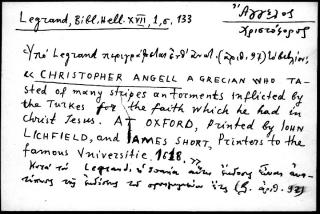 Legrand, Bibl. Hell. XVII, 1, σ. 133
Ἄγγελος
Χριστόφορος
Ὑπὸ Legrand περιγράφεται ἐνθ' ἀνωτ. (ἀριθ. 92) τὸ βιβλίον,
« CHRISTOPHER ANGELL A GRECIAN WHO TA-
sted of many stripes an torments inflicted by
the Turkes for the faith which he had in
Christ Jesus. AT OXFORD, Printed by JOHN
LICHFIELD, and JAMES SHORT, Printers to the
famous Vniversitie. 1618. »
Κατὰ τὸν Legrand, ἡ
τῆς ἐκδόσεως τοῦ ἔτους (ἀριθ. 92)